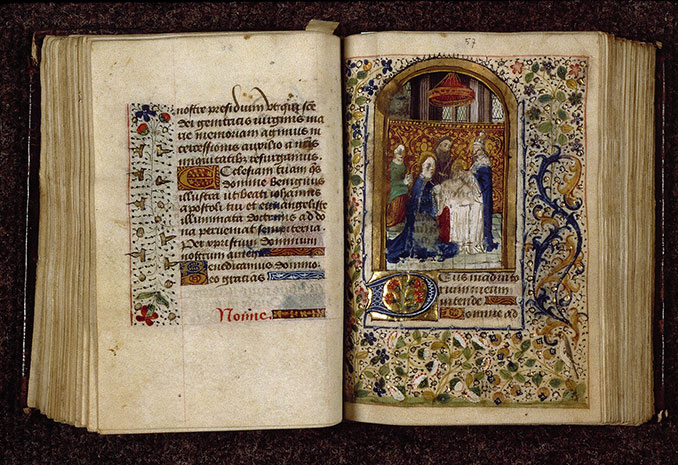 nostre presidium ut qui sce
dei genitricis virginis ma
rie memoriam agimus in
tercessionis auxilio a nris
iniquitatibz resurgamus
Ecclesiam tuam qs
domine benignus
illustra ut beati iohannis
apostoli tui et euangeliste
illuminata doctrinis ad do
na perueniat sempiterna
Per xpistum dominum
nostrum amen
Benedicamus domino
deo gracias
Nonne
57
Deus in adiuto
rium meum
intende
Domine ad